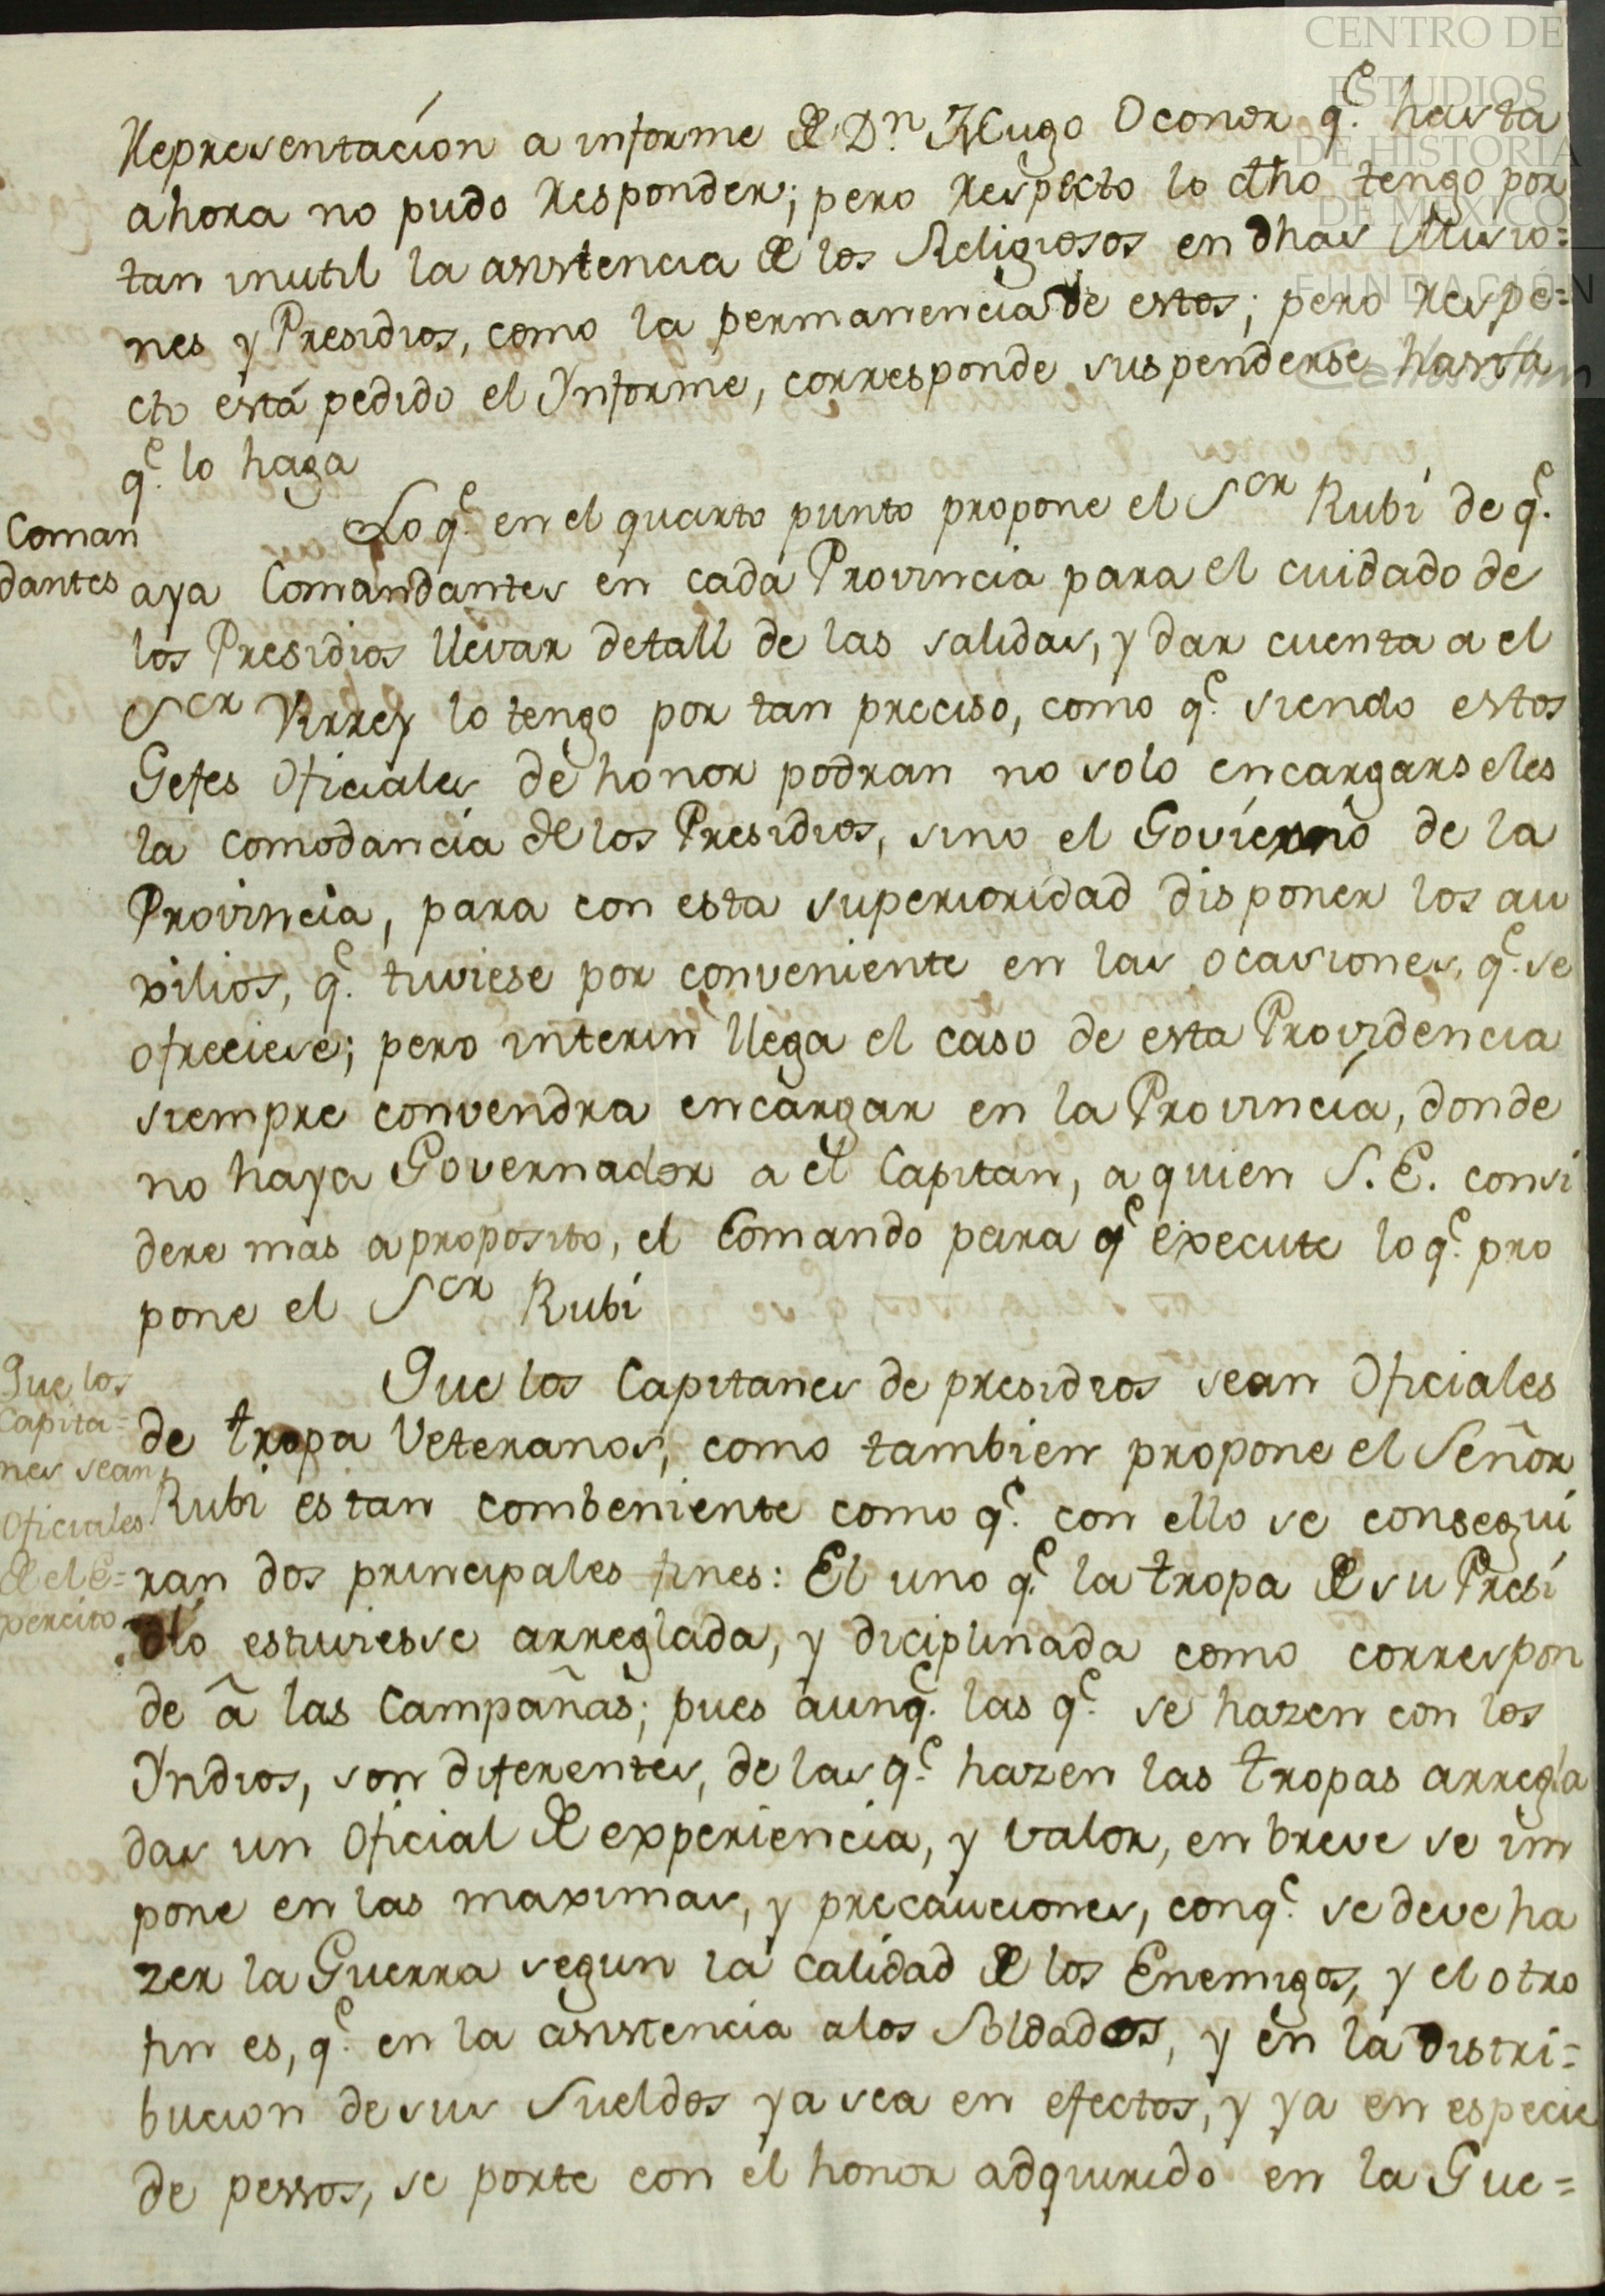 CENTRO DE
ESTUDIOS
DE HISTORIA
DE MÉXICO
FUNDACIÓN
Representacíon a informe de Dn. Hugo Oconor q.e hasta
ahora no pudo Responder; pero Respecto lo dho tengo por
tan inutil la asistencia de los Religiosos en dhas Misio=
nes y Presidios, como la permanencia de estos; pero Respe=
cto está pedido el Ynforme, corresponde suspenderse hasta
q.e lo haga
Coman
dantes
Lo q.e en el quarto punto propone el Sor Rubí de q.e
aya Comandantes en cada Provincia para el cuidado de
los Presidios llevar detall de las salidas, y dar cuenta a el
Sor Virrey lo tengo por tan preciso, como q.e siendo estos
Gefes Oficiales de honor podran no solo encargarseles
la comodancia de los Presidios, sino el Govierno de la
Provincia, para con esta superioridad disponer los au
xilios, q.e tuviese por conveniente en las ocasiones, q.e se
ofreciese; pero interin llega el caso de esta Providencia
siempre convendra encargar en la Provincia, donde
no haya Governador a el Capitan, a quien S.E. consi
dere mas a proposito, el Comando para q.e execute lo q.e pro
pone el Sor Rubí
Que los
Capita=
nes sean
Oficiales
de el E=
xercito
Que los Capitanes de presidios sean Oficiales
de tropa Veteranos, como tambien propone el Señor
Rubi es tan combeniente como q.e con ello se consegui
ran dos principales fines: El uno q.e la tropa de su Presi
dio estuviesse arreglada, y diciplinada como correspon
de â las Campañas; pues aunq.e las q.e se hazen con los
Yndios, son diferentes, de las q.e hazen las tropas arregla
das un Oficial de experiencia, y valor, en breve se im
pone en las maximas, y precauciones, conq.e se deve ha
zer la Guerra segun la calidad de los Enemigos, y el otro
fin es, q.e en la asistencia a los Soldados, y en la distri=
bucion de sus Sueldos ya sea en efectos, y ya en especie
de pessos, se porte con el honor adquirido en la Gue=